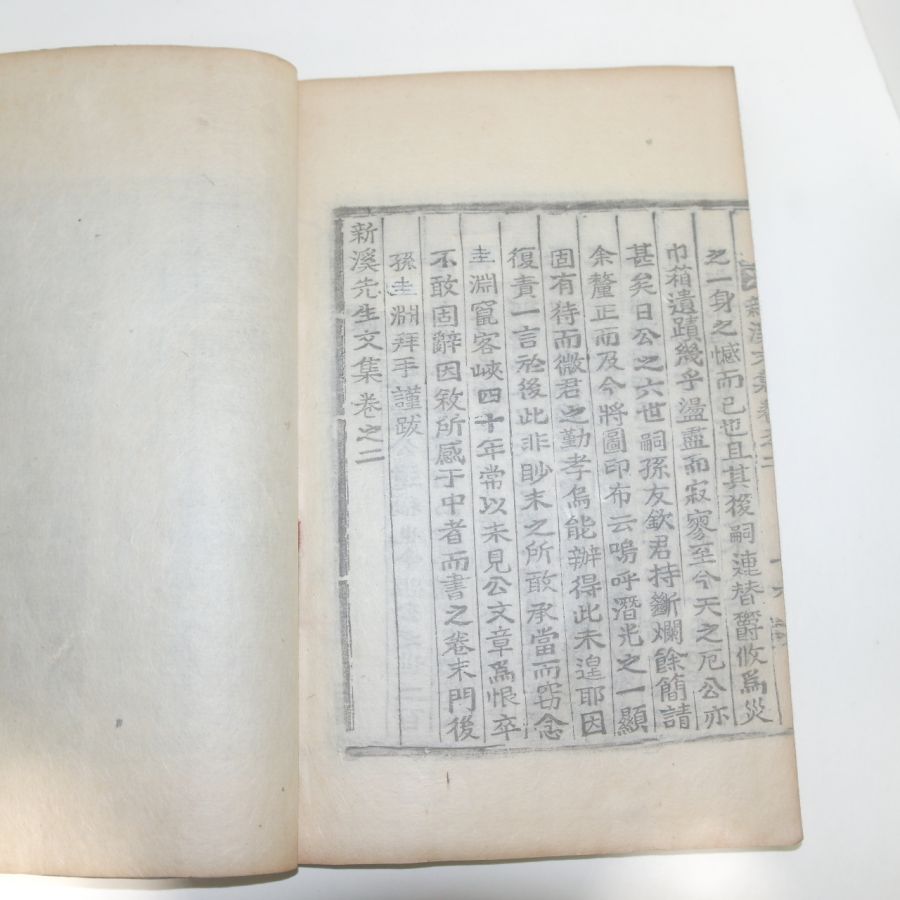 新溪文集卷之二
之一身之憾而已也且其後嗣連替欝攸爲災
巾箱遺蹟幾乎盪盡而寂寥至今天之厄公亦
甚矣日公之六世嗣孫友欽君持斷爛餘簡請
余釐正而及今將圖印布云嗚呼潛光之一顯
固有待而微君之勤孝烏能辦得此未遑耶因
復責一言於後此非眇末之所敢承當而窃念
圭淵竄客峽四十年常以未見公文章爲恨卒
不敢固辭因敘所感于中者而書之卷末門後
孫圭淵拜手謹跋
新溪先生文集卷之二